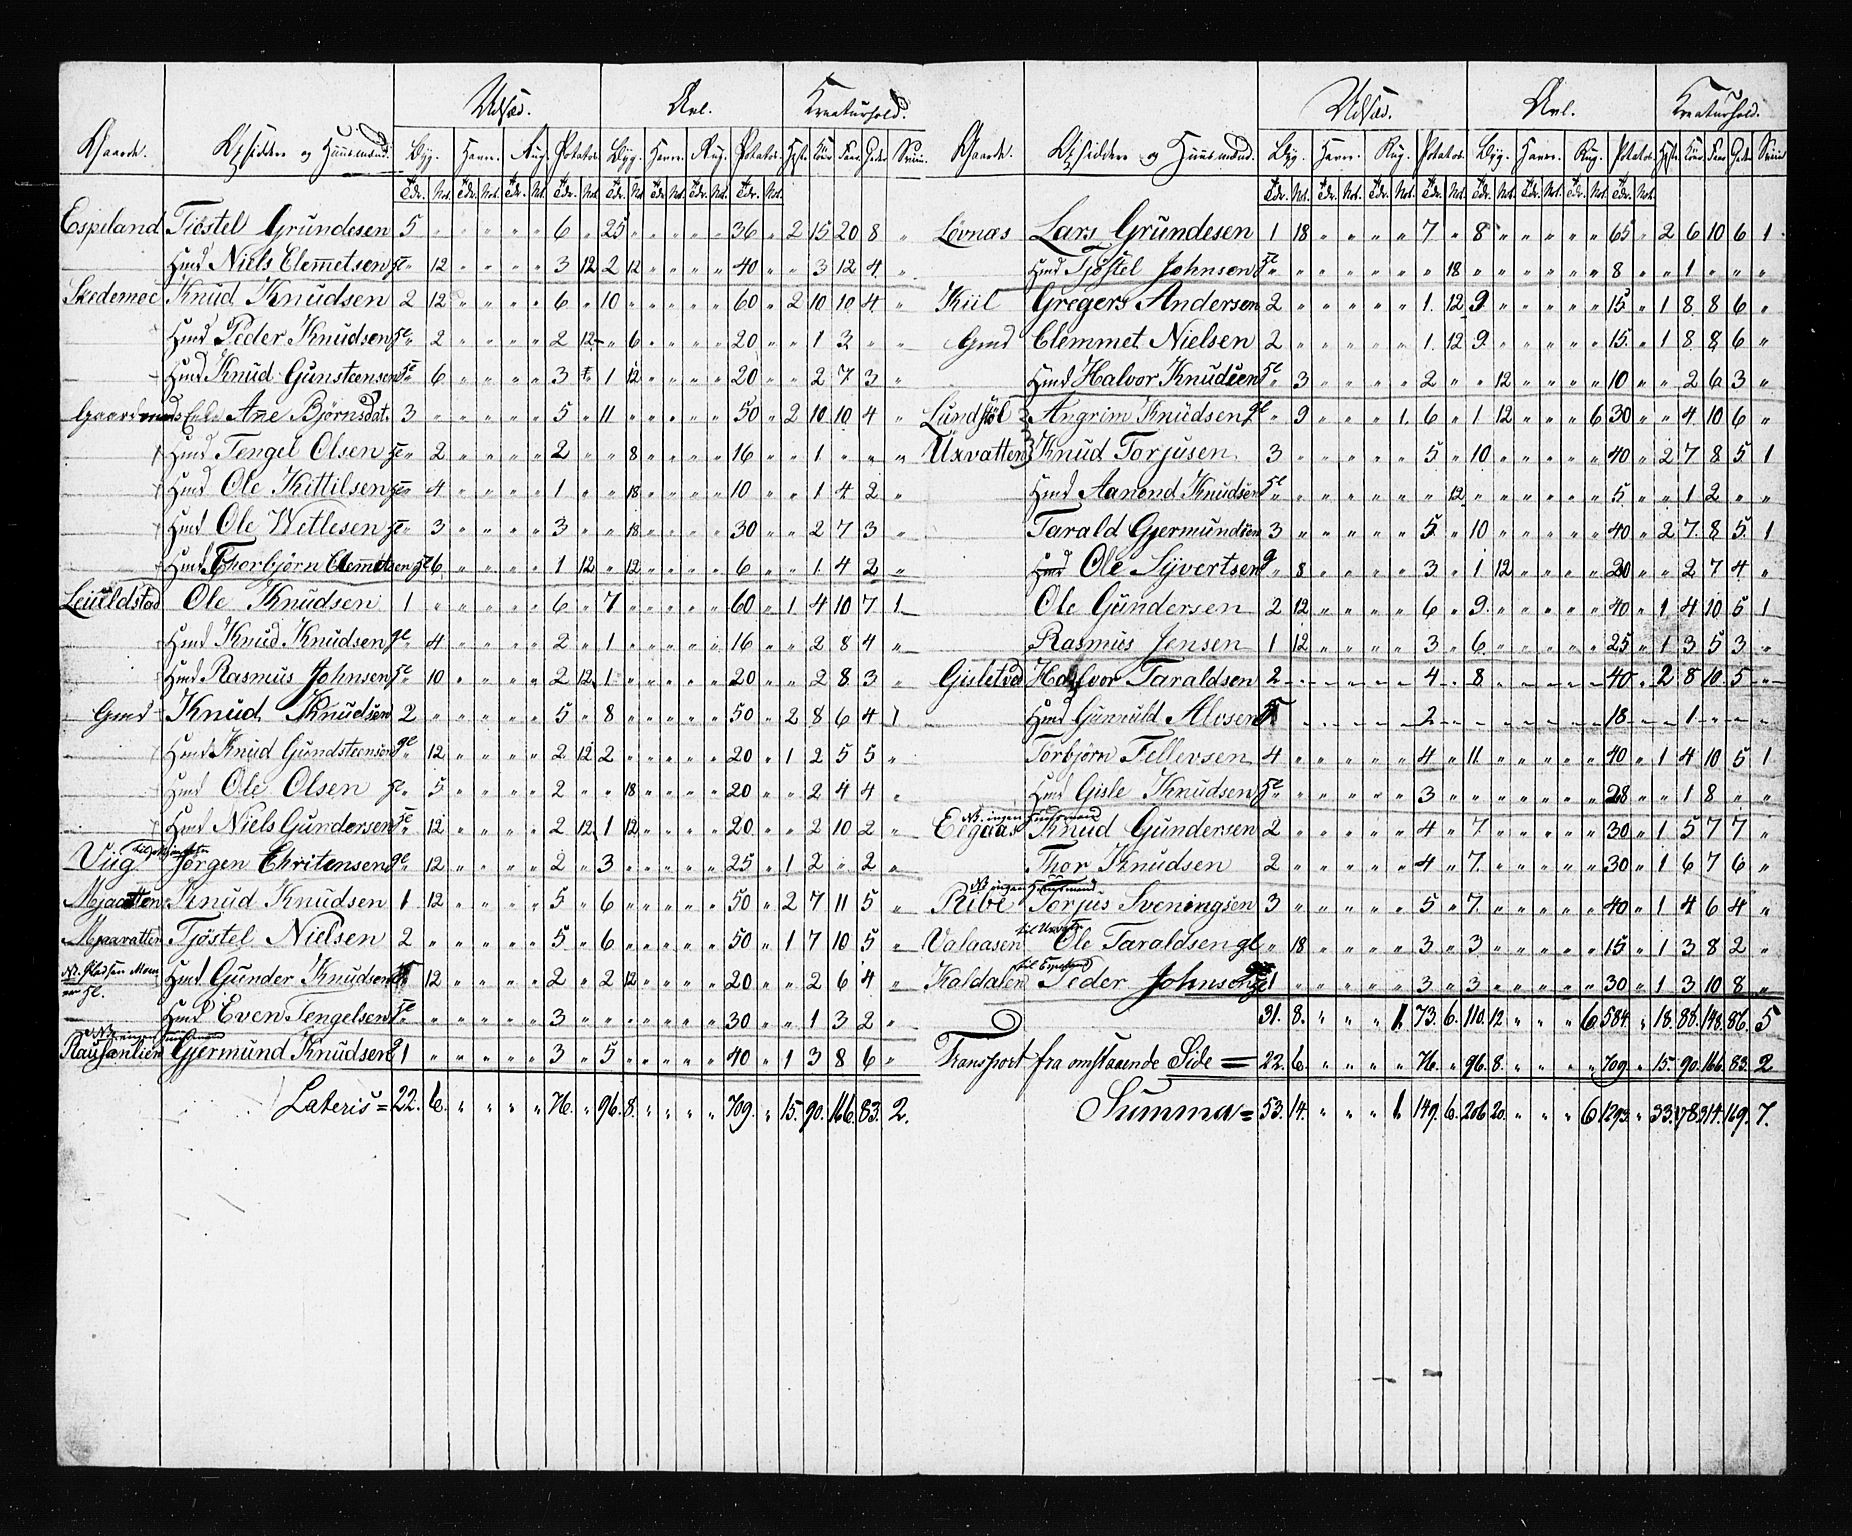 Udsæd. Avl. Kreaturhold.
Gaarde. Opsiddere og Huusmænd. Byg. Havre. Rug. Potatos. Byg. Havre. Rug. Potatos. Heste Kiør. Faar. Geder Sviin.
Tdr. Not. Tdr. Not. Tdr. Not. Tdr. Not. Tdr. Not. Tdr. Not. Tdr. Not. Tdr. Not.
Espeland Tiöstel Grundesen 5 " " " " " 6 " 25 " " " " " 36 " 2 15 20 8 "
Hmd Niels Clemetsen " 12 " " " " 3 12 2 12 " " " " 40 " " 3 12 4 "
Skedemoe Knud Knudsen 2 12 " " " " 6 " 10 " " " " " 60 " 2 10 10 4 "
Hmd Peder Knudsen " 2 " " " " 2 12 " 6 " " " " 20 " " 1 3 " "
Hmd Knud Gunsteensen " 6 " " " " 3 " 1 12 " " " " 20 " " 2 7 3 "
Gaardmands Enke Ane Björnsdat. 3 " " " " " 5 " 11 " " " " " 50 " 2 10 10 4 "
Hmd Tengel Olsen " 2 " " " " 2 " " 8 " " " " 16 " " 1 " " "
Hmd Ole Kittilsen " 4 " " " " 1 " " 18 " " " " 10 " " 1 4 2 "
Hmd Ole Wetlesen " 3 " " " " 3 " " 18 " " " " 30 " " 2 7 3 "
Hmd Thorbjörn Clemetsen " 6 " " " " 1 12 " 12 " " " " 6 " " 1 4 2 "
Leiuldstad Ole Knudsen 1 " " " " " 6 " 7 " " " " " 60 " 1 4 10 7 1
Hmd Knud Knudsen " 4 " " " " 2 " 1 " " " " " 16 " " 2 8 4 "
Hmd Rasmus Johnsen " 10 " " " " 2 12 1 " " " " " 20 " " 2 8 3 "
Gmd Knud Knudsen 2 " " " " " 5 " 8 " " " " " 50 " 2 8 6 4 1
Hmd Knud Gundsteensen " 12 " " " " 2 12 2 " " " " " 20 " 1 2 5 5 "
Hmd Ole Olsen " 5 " " " " 2 " " 18 " " " " 20 " " 2 4 4 "
Hmd Niels Gundersen " 12 " " " " 2 12 1 12 " " " " 20 " " 2 10 2 "
Viig Jörgen Chritensen " 12 " " " " 2 " 3 " " " " " 25 " 1 2 " 2 "
Mjaatten Knud Knudsen 1 12 " " " " 5 " 6 " " " " " 50 " 2 7 11 5 "
Mjaavatten Tjöstel Nielsen 2 " " " " " 5 " 6 " " " " " 50 " 1 7 10 5 "
Hmd Gunder Knudsen " 12 " " " " 2 " 2 12 " " " " 20 " " 2 6 4 "
Hmd Even Tengelsen " " " " " " 3 " " " " " " " 30 " " 1 3 2 "
NB. ingen Huusmænd
Gjermund Knudsen 1 " " " " " 3 " 5 " " " " " 40 " 1 3 8 6 "
Lateris = 22. 6. " " " " 76. " 96. 8. " " " " 709. " 15. 90. 166. 83. 2.
Udsæd. Avl. Kreaturhold.
Gaarde. Opsiddere og Huusmænd. Byg. Havre. Rug. Potatos. Byg. Havre. Rug. Potatos. Heste Kiør Faar Geder Sviin
Tdr. Not. Tdr. Not. Tdr. Not. Tdr. Not. Tdr. Not. Tdr. Not. Tdr. Not. Tdr. Not.
Lövnæs Lars Grundesen 1 18 " " " " 7 " 8 " " " " " 65 " 2 6 10 6 1
Hmd Tjöstel Johnsen " " " " " " " 18 " " " " " " 8 " " 1 " " "
Kiil Gregers Andersen 2 " " " " " 1 12 9 " " " " " 15 " 1 8 8 6 "
Gmd Clemmet Nielsen 2 " " " " " 1 12 9 " " " " " 15 " 1 8 8 6 "
Hmd Halvor Knudsen " 3 " " " " 2 " " 12 " " " " 10 " " 2 6 3 "
Lundstöl Angrim Knudsen " 9 " " " 1 6 " 1 12 " " " 6 30 " " 4 10 6 "
Uxvatten Knud Torjusen 3 " " " " " 5 " 10 " " " " " 40 " 2 7 8 5 1
Hmd Aanond Knudsen " " " " " " " 12 " " " " " " 5 " " 1 2 " "
Tarald Gjermundsen 3 " " " " " 5 " 10 " " " " " 40 " 2 7 8 5 1
Hmd Ole Syvertsen " 8 " " " " 3 " 1 12 " " " " 20 " " 2 7 4 "
Ole Gundersen 2 12 " " " " 6 " 9 " " " " " 40 " 1 4 10 5 1
Rasmus Jensen 1 12 " " " " 3 " 6 " " " " " 25 " 1 3 5 3 "
Gislestad Halvor Taraldsen 2 " " " " " 4 " 8 " " " " " 40 " 2 8 10 5 "
Hmd Gunnuld Alvsen " " " " " 2 " " " " " " " 18 " " 1 " " "
Torbjörn Tellevsen 4 " " " " " 4 " 11 " " " " " 40 " 1 4 10 5 1
Hmd Gisle Knudsen " " " " " " 3 " " " " " " " 28 " " 1 8 " "
NB. ingen Huusmænd
Eegaas Knud Gundersen 2 " " " " " 4 " 7 " " " " " 30 " 1 5 7 7 "
Thor Knudsen 2 " " " " " 4 " 7 " " " " " 30 " 1 6 7 6 "
NB ingen Huusmænd
Ribe Torjus Sveningsen 3 " " " " " 5 " 7 " " " " " 40 " 1 4 6 4 "
Valaasen Ole Taraldsen " 18 " " " " 3 " 3 " " " " " 15 " 1 3 8 2 "
til Espeland
Kaldalen Peder Johnsen 1 " " " " " 3 " 3 " " " " " 30 " 1 3 10 8 "
31. 8. " " " 1. 73. 6. 110. 12 " " " 6. 584. " 18. 88. 148. 86. 5
Transport fra omstaaende Side = 22. 6. " " " " 76. " 96. 8. " " " " 709 " 15. 90. 166. 83. 2
Summa = 53. 14. " " " 1. 149. 6. 206 20. " " " 6 1293. " 33. 178 314. 169. 7.